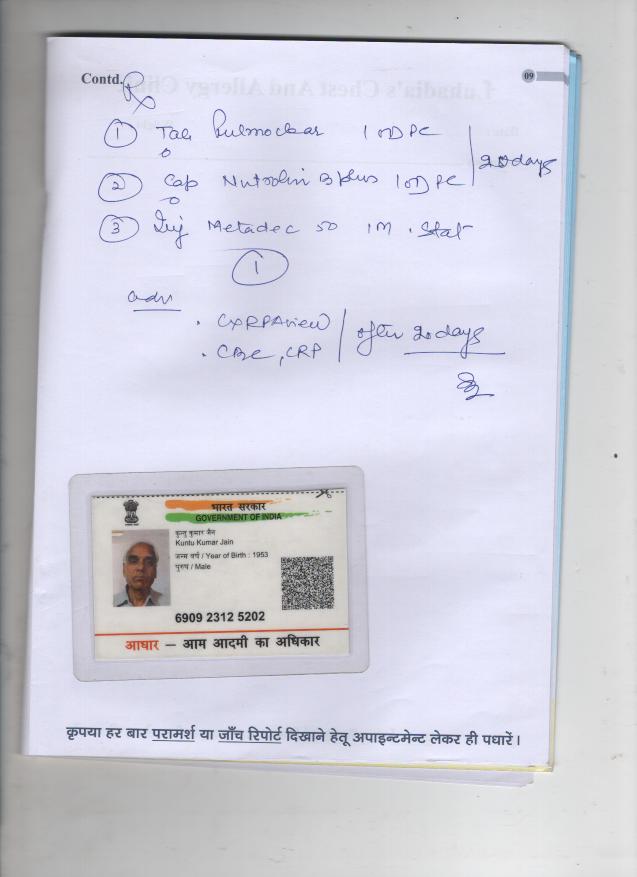 Contd.
09
Rx
① Tab Pulmoclear 1 OD PC
② Cap Nutrolin B plus 1 OD PC
20 days
③ Inj Metadec 50 IM. Stat
①
adv
. CXR PA view
. CBC, CRP
after 20 days
भारत सरकार
GOVERNMENT OF INDIA
कुन्तु कुमार जैन
Kuntu Kumar Jain
जन्म वर्ष / Year of Birth : 1953
पुरुष / Male
6909 2312 5202
आधार — आम आदमी का अधिकार
कृपया हर बार परामर्श या जाँच रिपोर्ट दिखाने हेतू अपाइन्टमेन्ट लेकर ही पधारें।